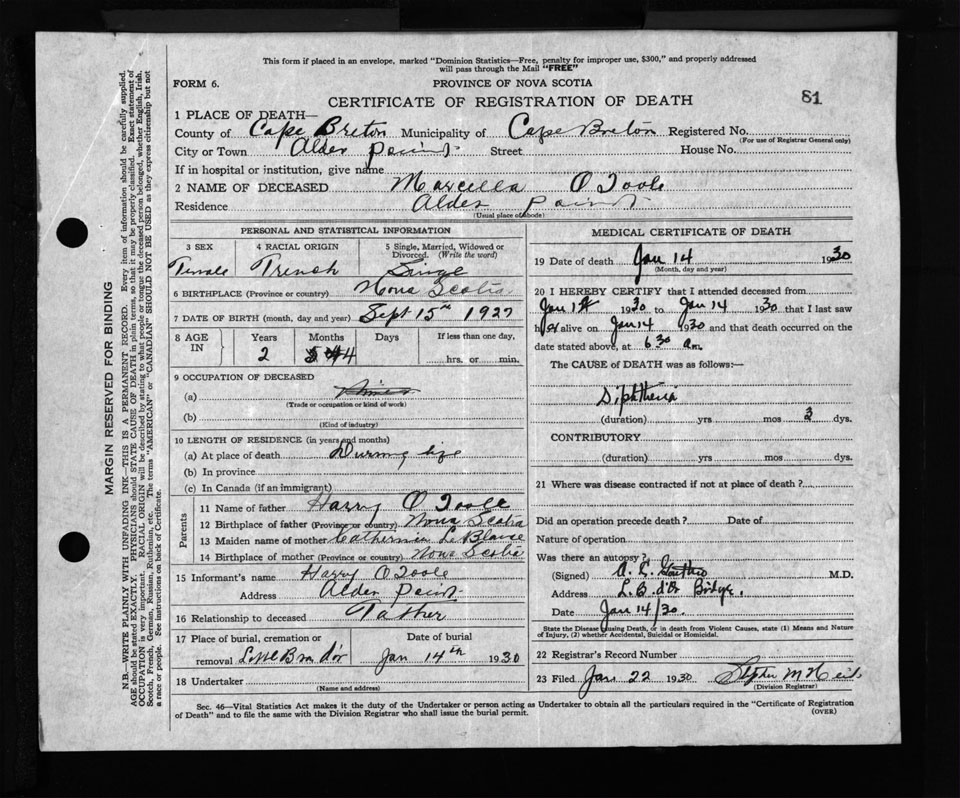 This form if placed in an envelope, marked "Dominion Statistics—Free, penalty for improper use, $300," and properly addressed
will pass through the Mail "FREE"
FORM 6. PROVINCE OF NOVA SCOTIA
81
CERTIFICATE OF REGISTRATION OF DEATH
1 PLACE OF DEATH—
County of Cape Breton Municipality of Cape Breton Registered No.
(For use of Registrar General only)
City or Town Alder Point Street House No.
If in hospital or institution, give name
2 NAME OF DECEASED Marcella O Toole
Residence Alder Point
(Usual place of abode)
PERSONAL AND STATISTICAL INFORMATION
3 SEX 4 RACIAL ORIGIN 5 Single, Married, Widowed or
Divorced. (Write the word)
Female French Single
6 BIRTHPLACE (Province or country) Nova Scotia
7 DATE OF BIRTH (month, day and year) Sept 15th 1927
8 AGE IN Years Months Days If less than one day,
2 4 hrs. or min.
9 OCCUPATION OF DECEASED
(a)
(Trade or occupation or kind of work)
(b)
(Kind of industry)
10 LENGTH OF RESIDENCE (in years and months)
(a) At place of death During life
(b) In province
(c) In Canada (if an immigrant)
Parents
11 Name of father Harry O Toole
12 Birthplace of father (Province or country) Nova Scotia
13 Maiden name of mother Le Blanc
14 Birthplace of mother (Province or country) Nova Scotia
15 Informant's name Harry O Toole
Address Alder Point
16 Relationship to deceased Father
17 Place of burial, cremation or Date of burial
removal Little Bras d'or Jan 14th 1930
18 Undertaker
(Name and address)
MEDICAL CERTIFICATE OF DEATH
19 Date of death Jan 14 1930
(Month, day and year)
20 I HEREBY CERTIFY that I attended deceased from
Jan 1930 to Jan 14 1930 that I last saw
her alive on Jan 14 1930 and that death occurred on the
date stated above, at 6 30 am.
The CAUSE OF DEATH was as follows:—
Diphtheria
(duration) yrs mos 3 dys.
CONTRIBUTORY
(duration) yrs mos dys.
21 Where was disease contracted if not at place of death?
Did an operation precede death? Date of
Nature of operation
Was there an autopsy?
(Signed) A. L. M.D.
Address L. B. d'Or Bridge.
Date Jan 14/30
State the Disease causing Death, or in death from Violent Causes, state (1) Means and Nature
of Injury, (2) whether Accidental, Suicidal or Homicidal.
22 Registrar's Record Number
23 Filed Jan 22 1930 Stephen McNeil
(Division Registrar)
Sec. 46—Vital Statistics Act makes it the duty of the Undertaker or person acting as Undertaker to obtain all the particulars required in the "Certificate of Registration
of Death" and to file the same with the Division Registrar who shall issue the burial permit. (OVER)
MARGIN RESERVED FOR BINDING
N.B.—WRITE PLAINLY WITH UNFADING INK—THIS IS A PERMANENT RECORD. Every item of information should be carefully supplied.
AGE should be stated EXACTLY. PHYSICIANS should STATE CAUSE OF DEATH in plain terms, so that it may be properly classified. Exact statement of
OCCUPATION is very important. RACIAL ORIGIN will be described by stating to what people or tongue the deceased person belonged, whether English, Irish,
Scotch, French, German, Russian, Ruthenian, etc. The terms "AMERICAN" or "CANADIAN" SHOULD NOT BE USED as they express citizenship but not
a race or people. See instructions on back of Certificate.